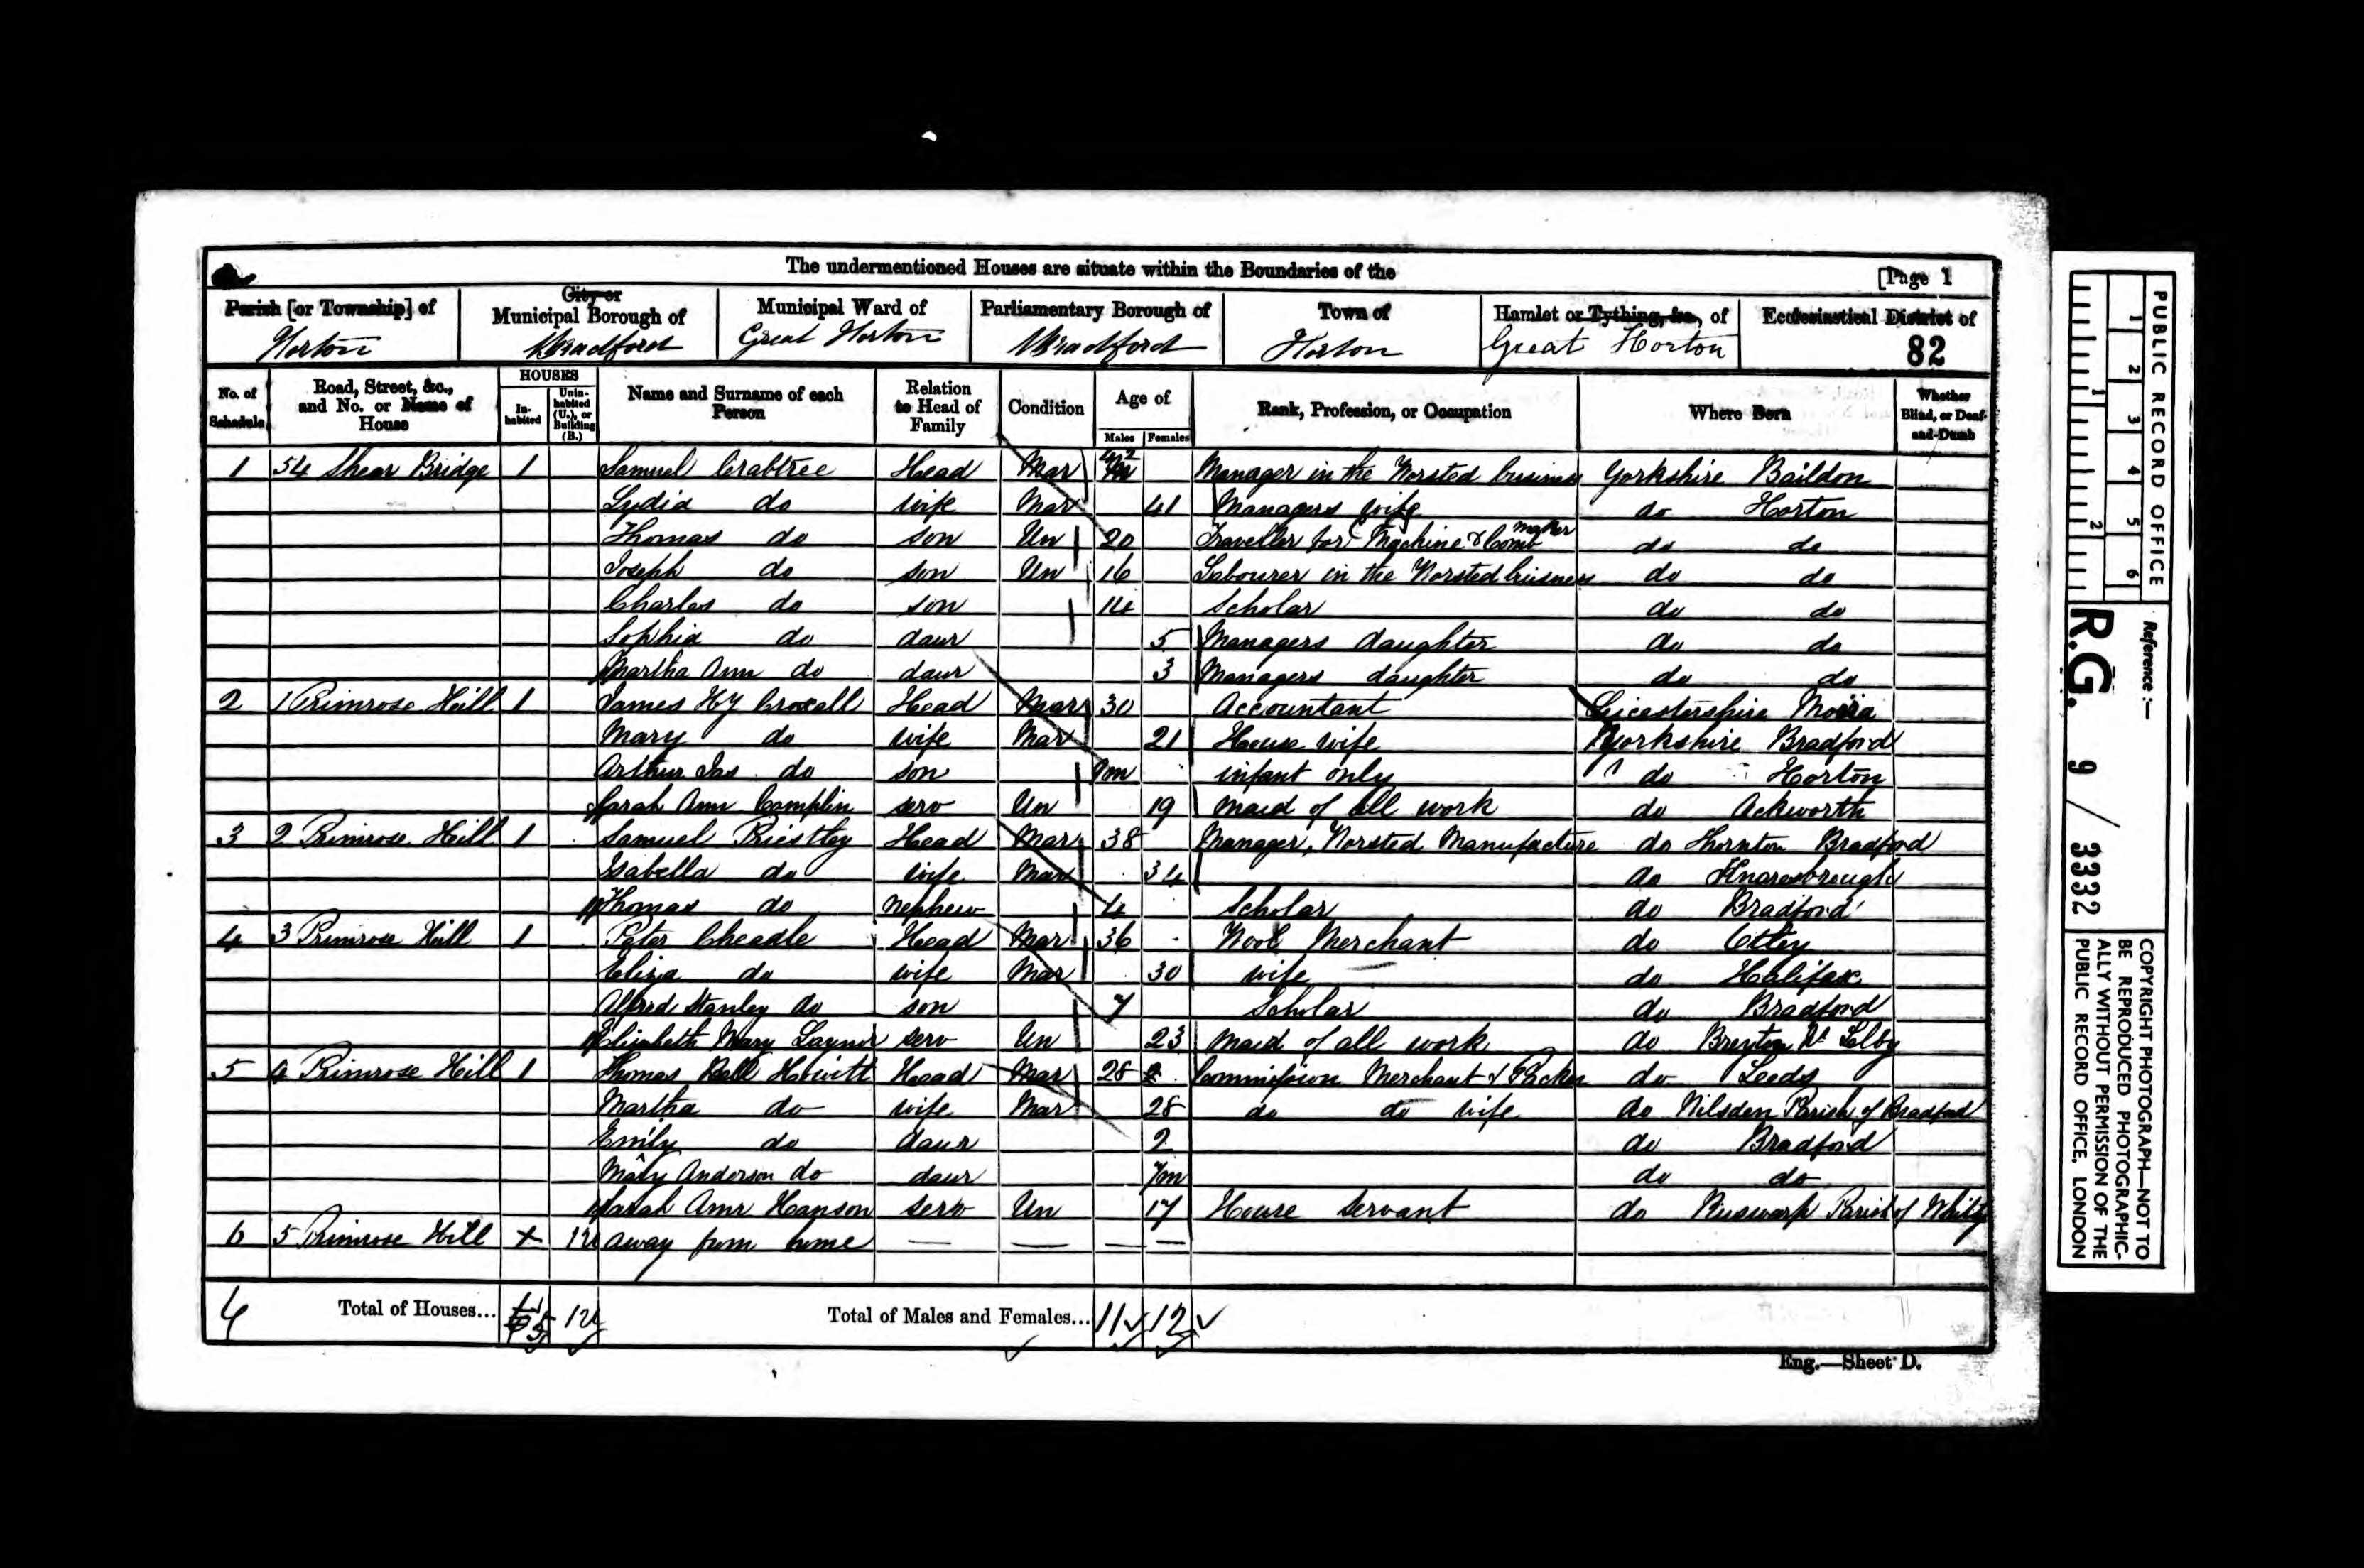 The undermentioned Houses are situate within the Boundaries of the
[Page 1
Parish [or Township] of
City or Municipal Borough of
Municipal Ward of
Parliamentary Borough of
Town of
Hamlet or Tything, &c., of
Ecclesiastical District of
Horton
Bradford
Great Horton
Bradford
Horton
Great Horton
82
No. of Schedule
Road, Street, &c., and No. or Name of House
HOUSES
In-habited
Unin-habited (U.), or Building (B.)
Name and Surname of each Person
Relation to Head of Family
Condition
Age of
Males
Females
Rank, Profession, or Occupation
Where Born
Whether Blind, or Deaf-and-Dumb
1 54 Shear Bridge 1 Samuel Crabtree Head Mar 42 Manager in the Worsted business Yorkshire Baildon
Lydia do wife Mar 41 Managers wife do Horton
Thomas do son Un 20 Traveller for Machine & Comb maker do do
Joseph do son Un 16 Labourer in the Worsted business do do
Charles do son 14 Scholar do do
Sophia do daur 5 Managers daughter do do
Martha Ann do daur 3 Managers daughter do do
2 1 Primrose Hill 1 James Hy Croxall Head Mar 30 Accountant Leicestershire Moira
Mary do wife Mar 21 House wife Yorkshire Bradford
Arthur Jas do son 9m infant only do Horton
Sarah Ann Camplin serv Un 19 Maid of all work do Ackworth
3 2 Primrose Hill 1 Samuel Priestley Head Mar 38 Manager, Worsted Manufacture do Thornton Bradford
Isabella do wife Mar 34 do Knaresbrough
Thomas do Nephew 4 Scholar do Bradford
4 3 Primrose Hill 1 Peter Cheadle Head Mar 36 Wool Merchant do Otley
Eliza do wife Mar 30 wife do Halifax
Alfred Stanley do son 7 Scholar do Bradford
Elizabeth Mary serv Un 23 Maid of all work do Selby
5 4 Primrose Hill 1 Thomas Hewitt Head Mar 28 Commission Merchant & Packer do Leeds
Martha do wife Mar 28 do do wife do Wilsden Parish of Bradford
Emily do daur 2 do Bradford
Mary Anderson do daur 7m do do
Sarah Ann Hanson serv Un 17 House Servant do Ruswarp Parish of Whitby
6 5 Primrose Hill 1U away from home — — — —
6 Total of Houses... 5 1U Total of Males and Females... 11 12
Eng.—Sheet D.
PUBLIC RECORD OFFICE
1 2 3 4 5 6
1 2
Reference :—
R.G. 9 / 3332
COPYRIGHT PHOTOGRAPH—NOT TO
BE REPRODUCED PHOTOGRAPHIC-
ALLY WITHOUT PERMISSION OF THE
PUBLIC RECORD OFFICE, LONDON